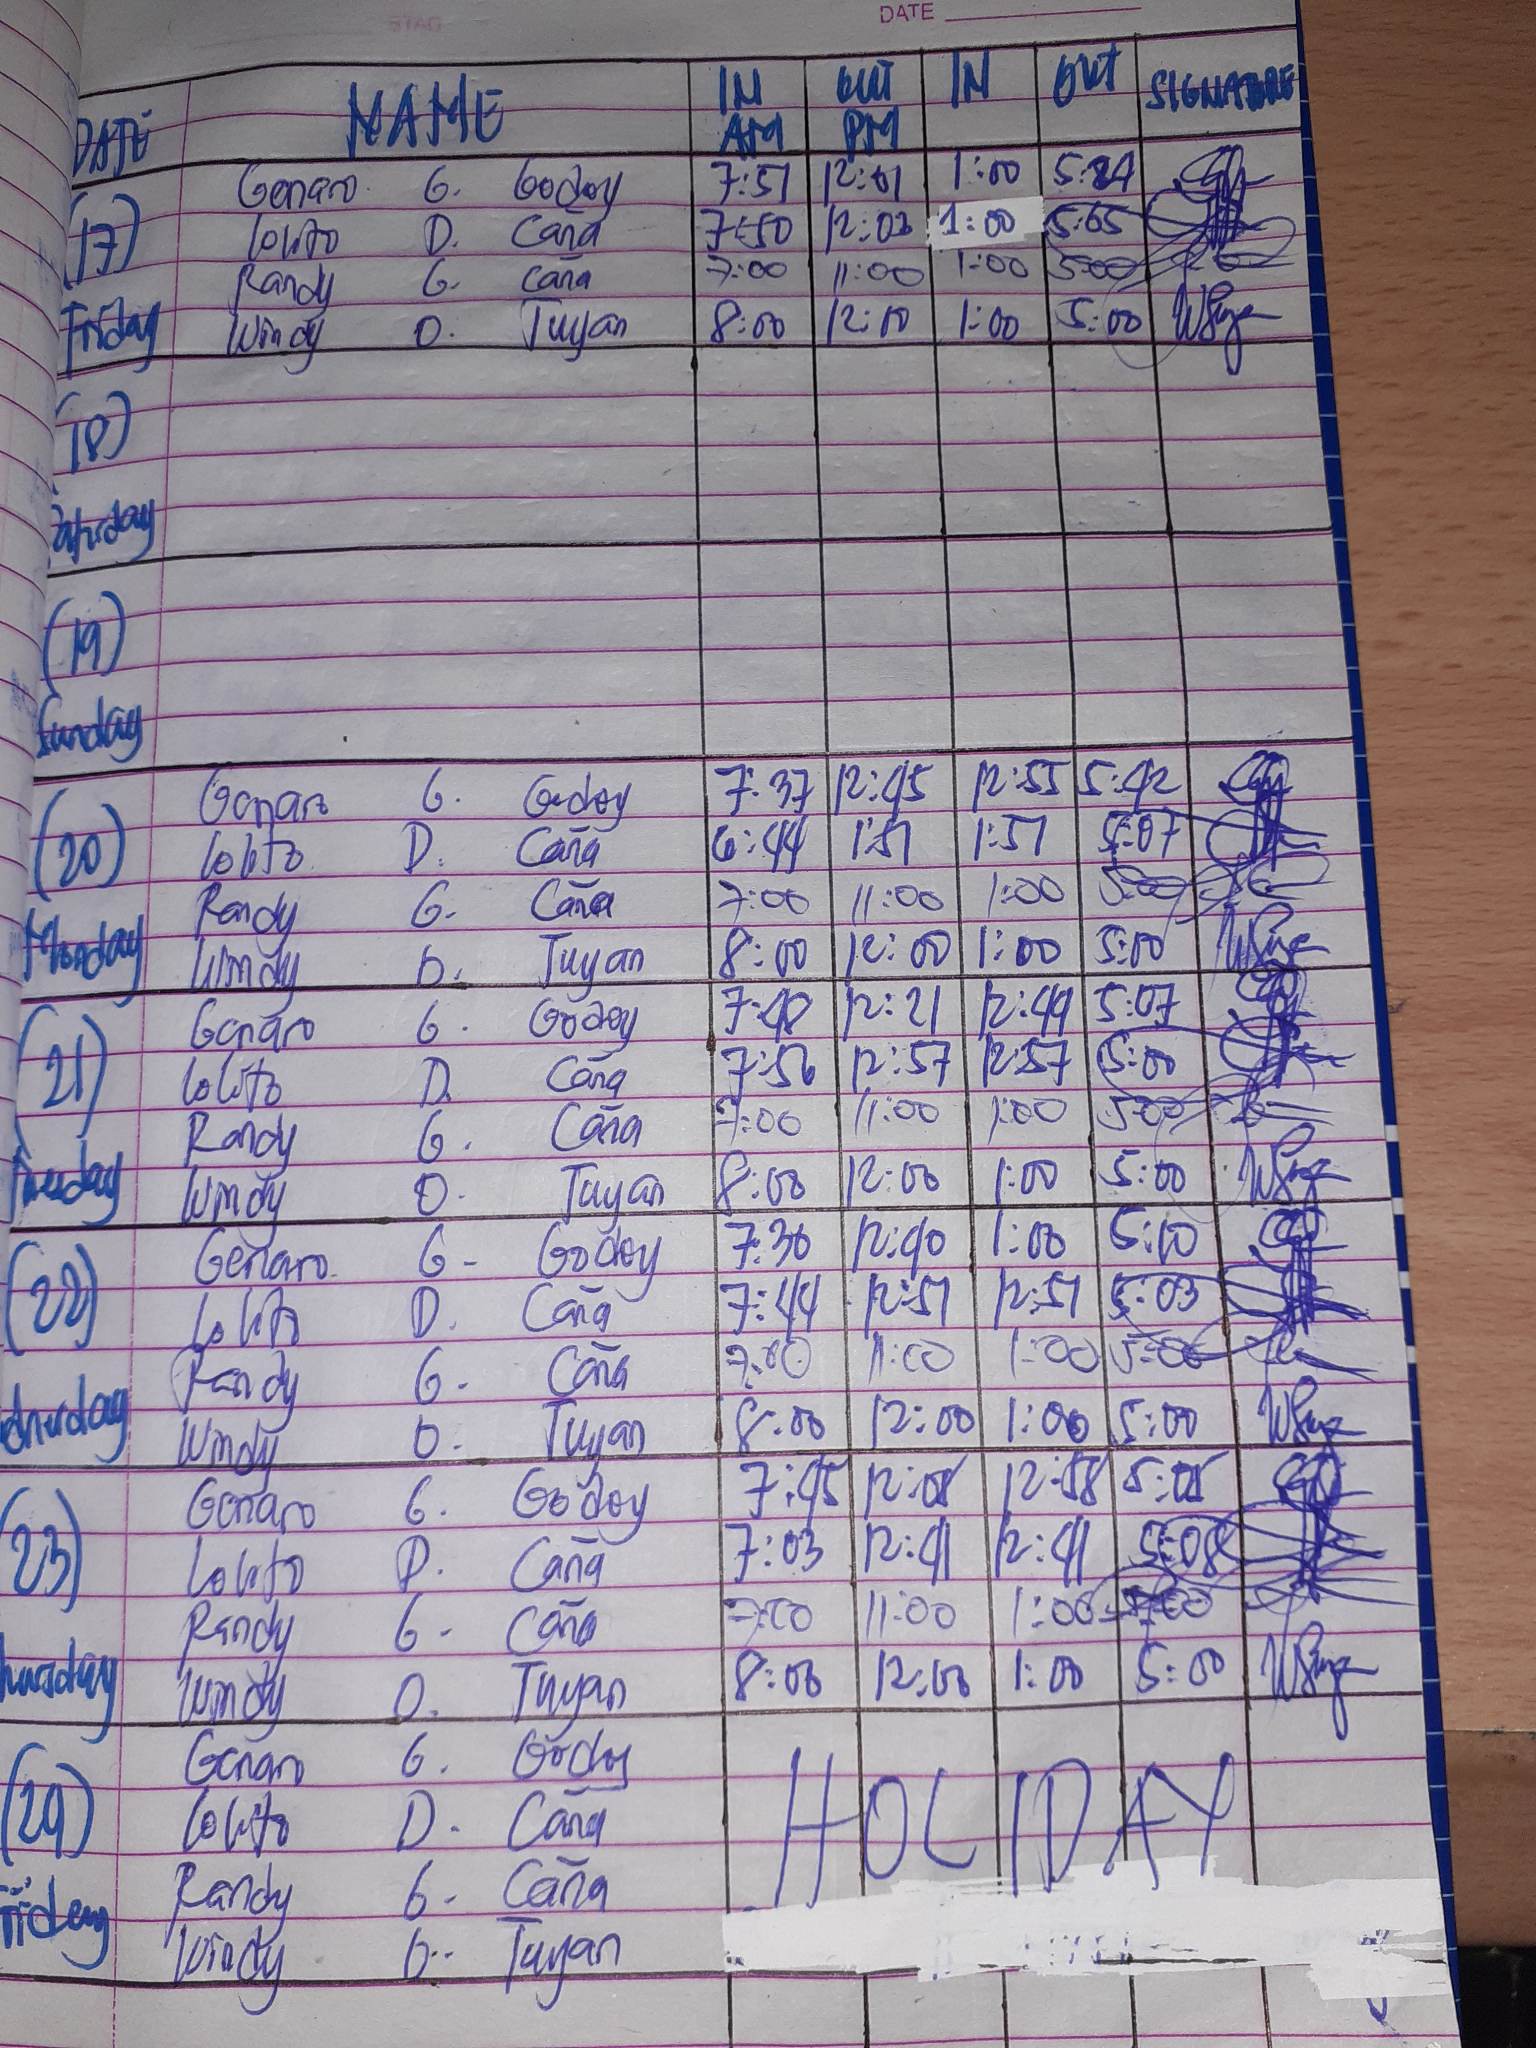 DATE
DATE NAME IN AM OUT PM IN OUT SIGNATURE
(17) Friday
Genaro G. Godoy 7:51 12:01 1:00
Lolito D. Caña 7:50 12:03 1:00
Randy G. Caña 7:00 11:00 1:00 5:00
Windy O. Tuyan 8:00 12:00 1:00 5:00
(18)
(19)
Sunday
(20) Monday
Genaro G. Godoy 7:37 12:45 12:55 5:42
Lolito D. Caña 6:44 1:51 1:51 5:07
Randy G. Caña 7:00 11:00 1:00 5:00
Windy O. Tuyan 8:00 12:00 1:00 5:00
(21)
Genaro G. Godoy 12:21 12:44 5:07
Lolito D. Caña 7:56 12:57 12:57 5:00
Randy G. Caña 7:00 11:00 1:00 5:00
Windy O. Tuyan 8:00 12:00 1:00 5:00
(22)
Genaro G. Godoy 7:30 12:40 1:00 5:10
Lolito D. Caña 7:44 12:51 12:51 5:03
Randy G. Caña 7:00 11:00 1:00 5:00
Windy O. Tuyan 8:00 12:00 1:00 5:00
(23)
Genaro G. Godoy 7:45 12:08 12:58
Lolito D. Caña 7:03 12:41 12:41 5:08
Randy G. Caña 7:00 11:00 1:00 5:00
Windy O. Tuyan 8:00 12:00 1:00 5:00
Genaro G. Godoy
Lolito D. Caña
Randy G. Caña
Windy O. Tuyan
HOLIDAY